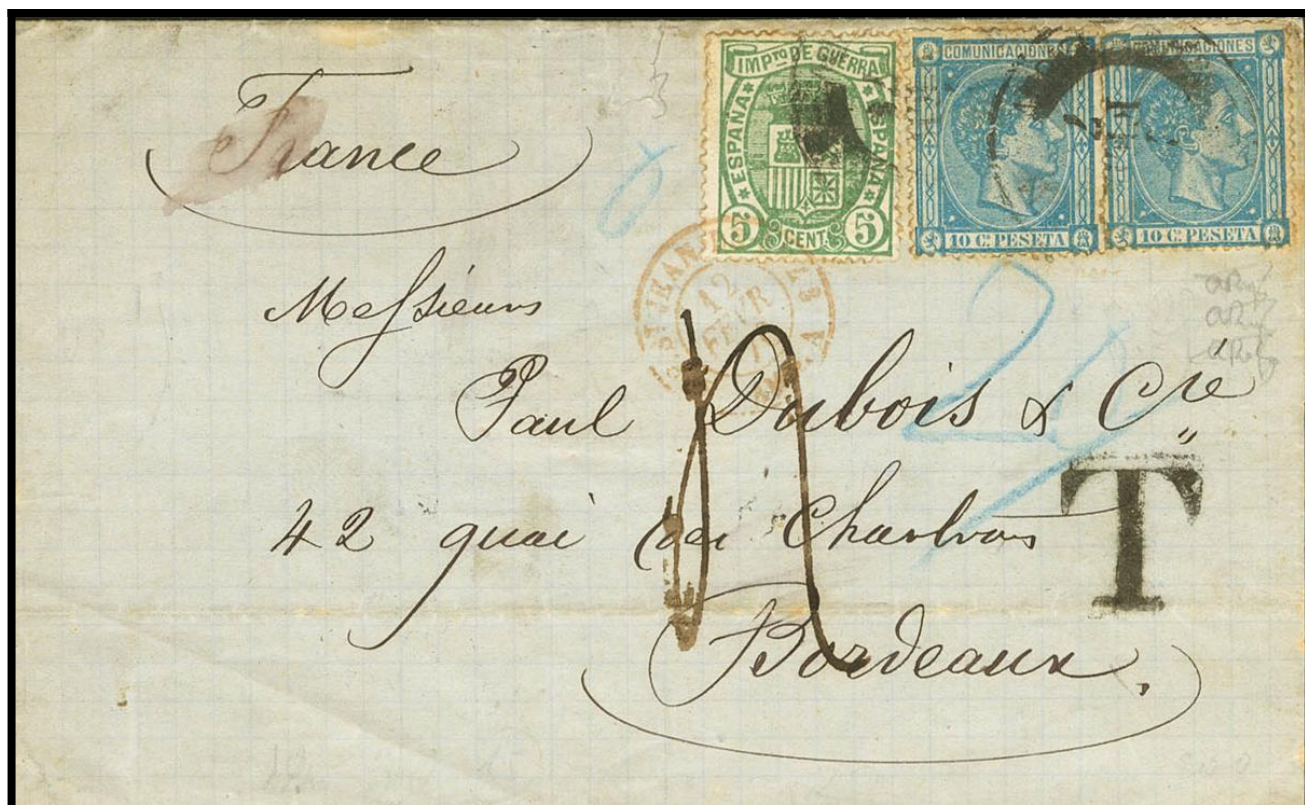 France
IMPTO DE GUERRA
ESPAÑA ESPAÑA
5 CENTS 5
COMUNICACIONES
10 Cs PESETA
COMUNICACIONES
10 Cs PESETA
ST JEAN
12
FEVR
Messieurs
Paul Dubois & Cie
42 quai des Chartrons
T
Bordeaux,